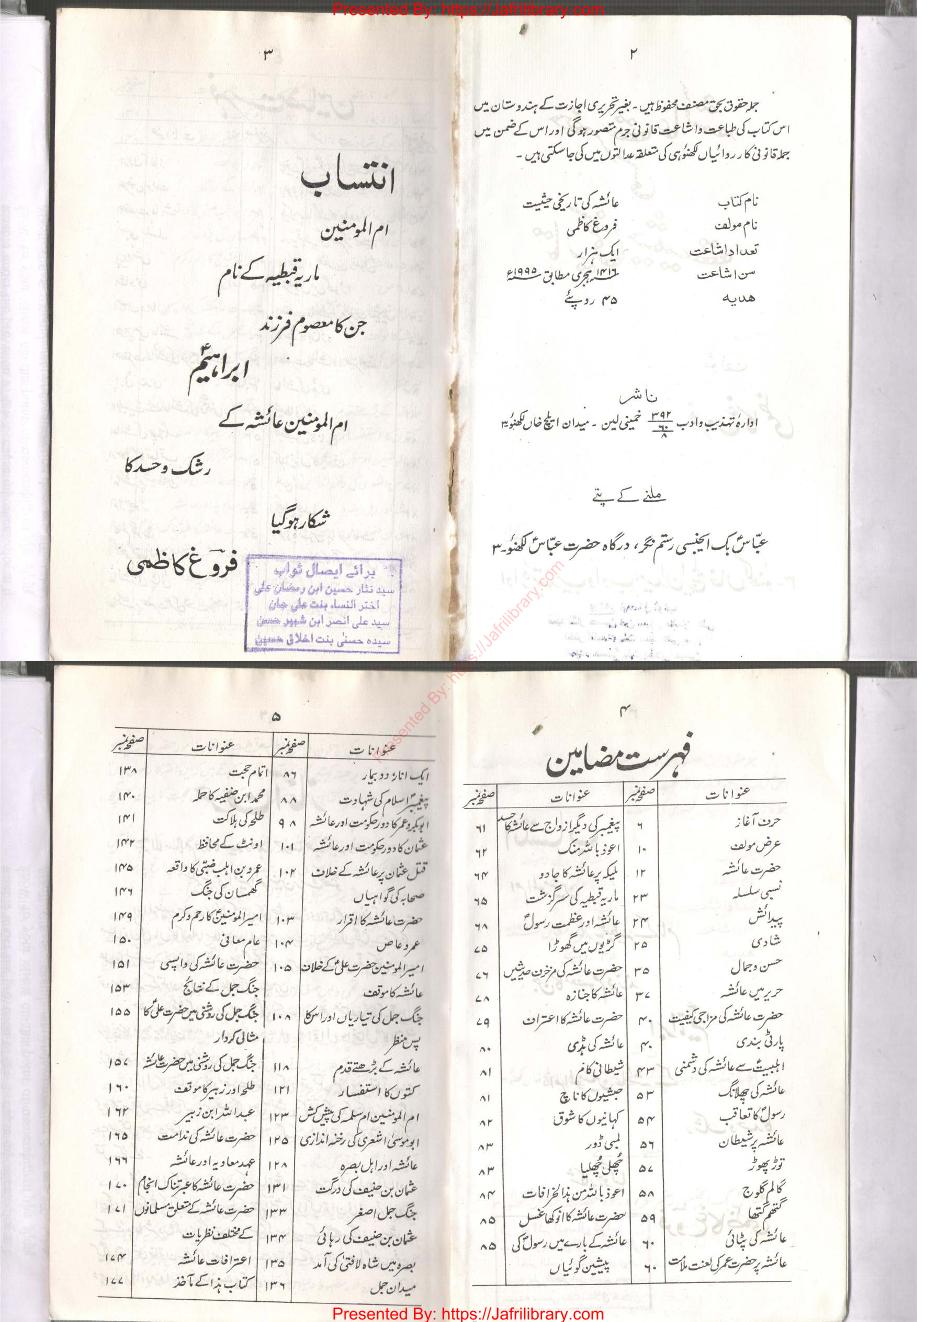 Presented By: https://Jafrilibrary.com
۲
جملہ حقوق بحق مصنف محفوظ ہیں۔ بغیر تحریری اجازت کے ہندوستان میں
اس کتاب کی طباعت و اشاعت قانونی جرم متصور ہوگی اور اس کے ضمن میں
جملہ قانونی کارروائیاں لکھنؤ ہی کی متعلقہ عدالتوں میں کی جاسکتی ہیں۔
نام کتاب عائشہ کی تاریخی حیثیت
نام مولف فروغ کاظمی
تعداد اشاعت ایک ہزار
سن اشاعت ۱۴۱۶ ہجری مطابق ۱۹۹۵ء
هدیه ۴۵ روپئے
ناشر
ادارۂ تہذیب و ادب ۳۹۲/۶۰/۸ خمینی لین۔ میدان ایلچ خاں لکھنؤ۔۳
ملنے کے پتے
عباسؑ بک ایجنسی رستم نگر، درگاہ حضرت عباسؑ لکھنؤ۔۳
۳
انتساب
ام المومنین
ماریہ قبطیہ کے نام
جن کا معصوم فرزند
ابراہیمؑ
ام المومنین عائشہ کے
رشک و حسد کا
شکار ہوگیا
فروغ کاظمی
برائے ایصال ثواب
سید نثار حسین ابن رمضان علی
اختر النساء بنت علی جان
سید علی انصر ابن شبیر حسن
سیدہ حسنیٰ بنت اخلاق حسین
Presented By: https://Jafrilibrary.com
۴
فہرست مضامین
عنوانات صفحہ نمبر
حرف آغاز ۶
عرض مولف ۱۰
حضرت عائشہ ۱۲
نسبی سلسلہ ۲۳
پیدائش ۲۴
شادی ۲۵
حسن و جمال ۳۵
حریر میں عائشہ ۳۷
حضرت عائشہ کی مزاجی کیفیت ۴۰
پارٹی بندی ۴۰
اہلبیتؑ سے عائشہ کی دشمنی ۴۳
عائشہ کی چھلانگ ۵۳
رسولؐ کا تعاقب ۵۴
عائشہ پر شیطان ۵۶
توڑ پھوڑ ۵۷
گالم گلوج ۵۸
گتھم گتھا ۵۹
عائشہ کی پٹائی ۶۰
عائشہ پر حضرت عمر کی لعنت ملامت ۶۰
عنوانات صفحہ نمبر
پیغمبرؐ کی دیگر ازواج سے عائشہ کا حسد ۶۱
اعوذ باللہ منک ۶۲
ملیکہ پر عائشہ کا جادو ۶۴
ماریہ قبطیہ کی سرگزشت ۶۵
عائشہ اور عظمت رسولؐ ۶۸
گڑیوں میں گھوڑا ۷۵
حضرت عائشہ کی مخزن حدیثیں ۷۶
عائشہ کا جنازہ ۷۸
حضرت عائشہ کا اعتراف ۷۹
عائشہ کی ہڈی ۸۰
شیطانی کام ۸۱
حبشیوں کا ناچ ۸۱
کہانیوں کا شوق ۸۲
لمبی ڈور ۸۳
چھلی چھلیا ۸۳
اعوذ باللہ من ہذا لخرافات ۸۴
حضرت عائشہ کا انوکھا غسل ۸۵
عائشہ کے بارے میں رسولؐ کی ۸۵
پیشین گوئیاں
۵
عنوانات صفحہ نمبر
ایک انار، دو بیمار ۸۶
پیغمبرؐ اسلام کی شہادت ۸۸
ابوبکر و عمر کا دور حکومت اور عائشہ ۹۸
عثمان کا دور حکومت اور عائشہ ۱۰۱
قتل عثمان پر عائشہ کے خلاف ۱۰۲
صحابہ کی گواہیاں
حضرت عائشہ کا اقرار ۱۰۳
عمرو عاص ۱۰۴
امیر المومنین حضرت علیؑ کے خلاف ۱۰۵
عائشہ کا موقف
جنگ جمل کی تیاریاں اور اسکا ۱۰۸
پس منظر
عائشہ کے بڑھتے قدم ۱۱۸
کتوں کا استفسار ۱۲۱
ام المومنین ام سلمہ کی پیش کش ۱۲۳
ابو موسیٰ اشعری کی رخنہ اندازی ۱۲۵
عائشہ اور اہل بصرہ ۱۲۸
عثمان بن حنیف کی درگت ۱۳۱
جنگ جمل اصغر ۱۳۳
عثمان بن حنیف کی رہائی ۱۳۴
بصرہ میں شاہ لافتیٰ کی آمد ۱۳۵
میدان جمل ۱۳۶
عنوانات صفحہ نمبر
اتمام حجت ۱۳۸
محمد ابن حنفیہ کا حملہ ۱۴۰
طلحہ کی ہلاکت ۱۴۱
اونٹ کے محافظ ۱۴۲
عمرو بن اہلب ضبتی کا واقعہ ۱۴۵
گھمسان کی جنگ ۱۴۶
امیر المومنینؑ کا رحم و کرم ۱۴۹
عام معافی ۱۵۰
حضرت عائشہ کی واپسی ۱۵۱
جنگ جمل کے نتائج ۱۵۳
جنگ جمل کی روشنی میں حضرت علیؑ کا ۱۵۵
مثالی کردار
جنگ جمل کی روشنی میں حضرت عائشہ ۱۵۷
طلحہ اور زبیر کا موقف ۱۶۰
عبداللہ ابن زبیر ۱۶۲
حضرت عائشہ کی ندامت ۱۶۵
عہد معاویہ اور عائشہ ۱۶۶
حضرت عائشہ کا عبرتناک انجام ۱۷۰
حضرت عائشہ کے متعلق مسلمانوں ۱۷۱
کے مختلف نظریات
اعترافات عائشہ ۱۷۴
کتاب ہذا کے ماخذ ۱۷۷
Presented By: https://Jafrilibrary.com